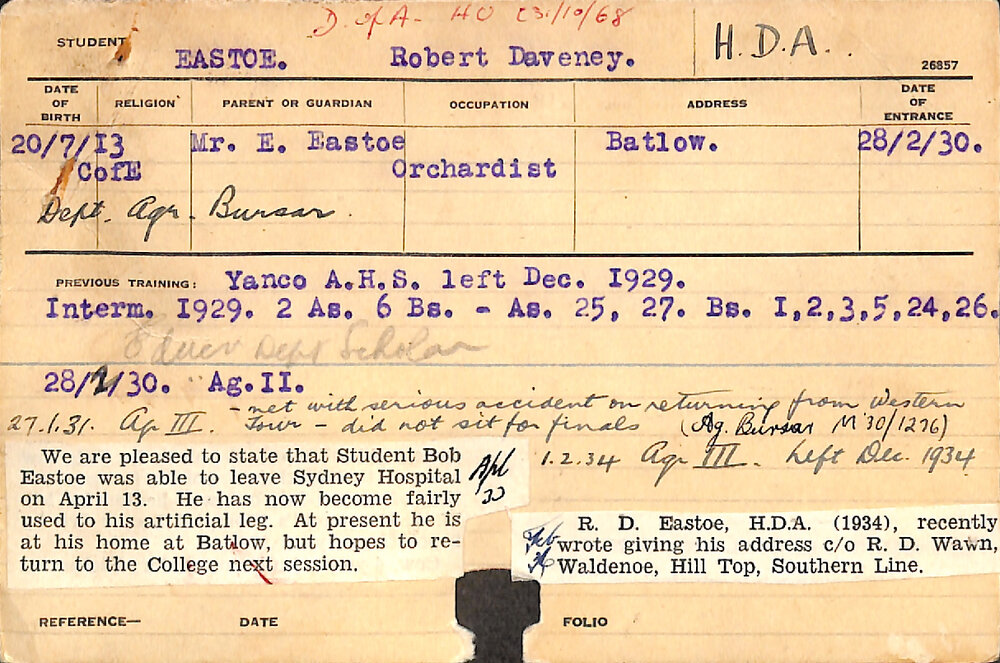 D. of A - HO (31/10/68
STUDENT
EASTOE. Robert Daveney. H.D.A..
26857
DATE OF BIRTH RELIGION PARENT OR GUARDIAN OCCUPATION ADDRESS DATE OF ENTRANCE
20/7/I3 Mr. E. Eastoe Batlow. 28/2/30.
CofE Orchardist
Dept. Agr. Bursar.
PREVIOUS TRAINING: Yanco A.H.S. left Dec. I929.
Interm. I929. 2 As. 6 Bs. - As. 25, 27. Bs. I,2,3,5,24,26.
Educn Dept Scholar
28/2/30. Ag.II.
- met with serious accident on returning from Western
27.1.31. Ag III. Tour - did not sit for finals (Ag. Bursar M 30/1276)
1.2.34 Agr III. Left Dec. 1934
We are pleased to state that Student Bob
Eastoe was able to leave Sydney Hospital
on April 13. He has now become fairly
used to his artificial leg. At present he is
at his home at Batlow, but hopes to re-
turn to the College next session.
Apl
33
R. D. Eastoe, H.D.A. (1934), recently
wrote giving his address c/o R. D. Wawn,
Waldenoe, Hill Top, Southern Line.
Feb
36
REFERENCE— DATE FOLIO